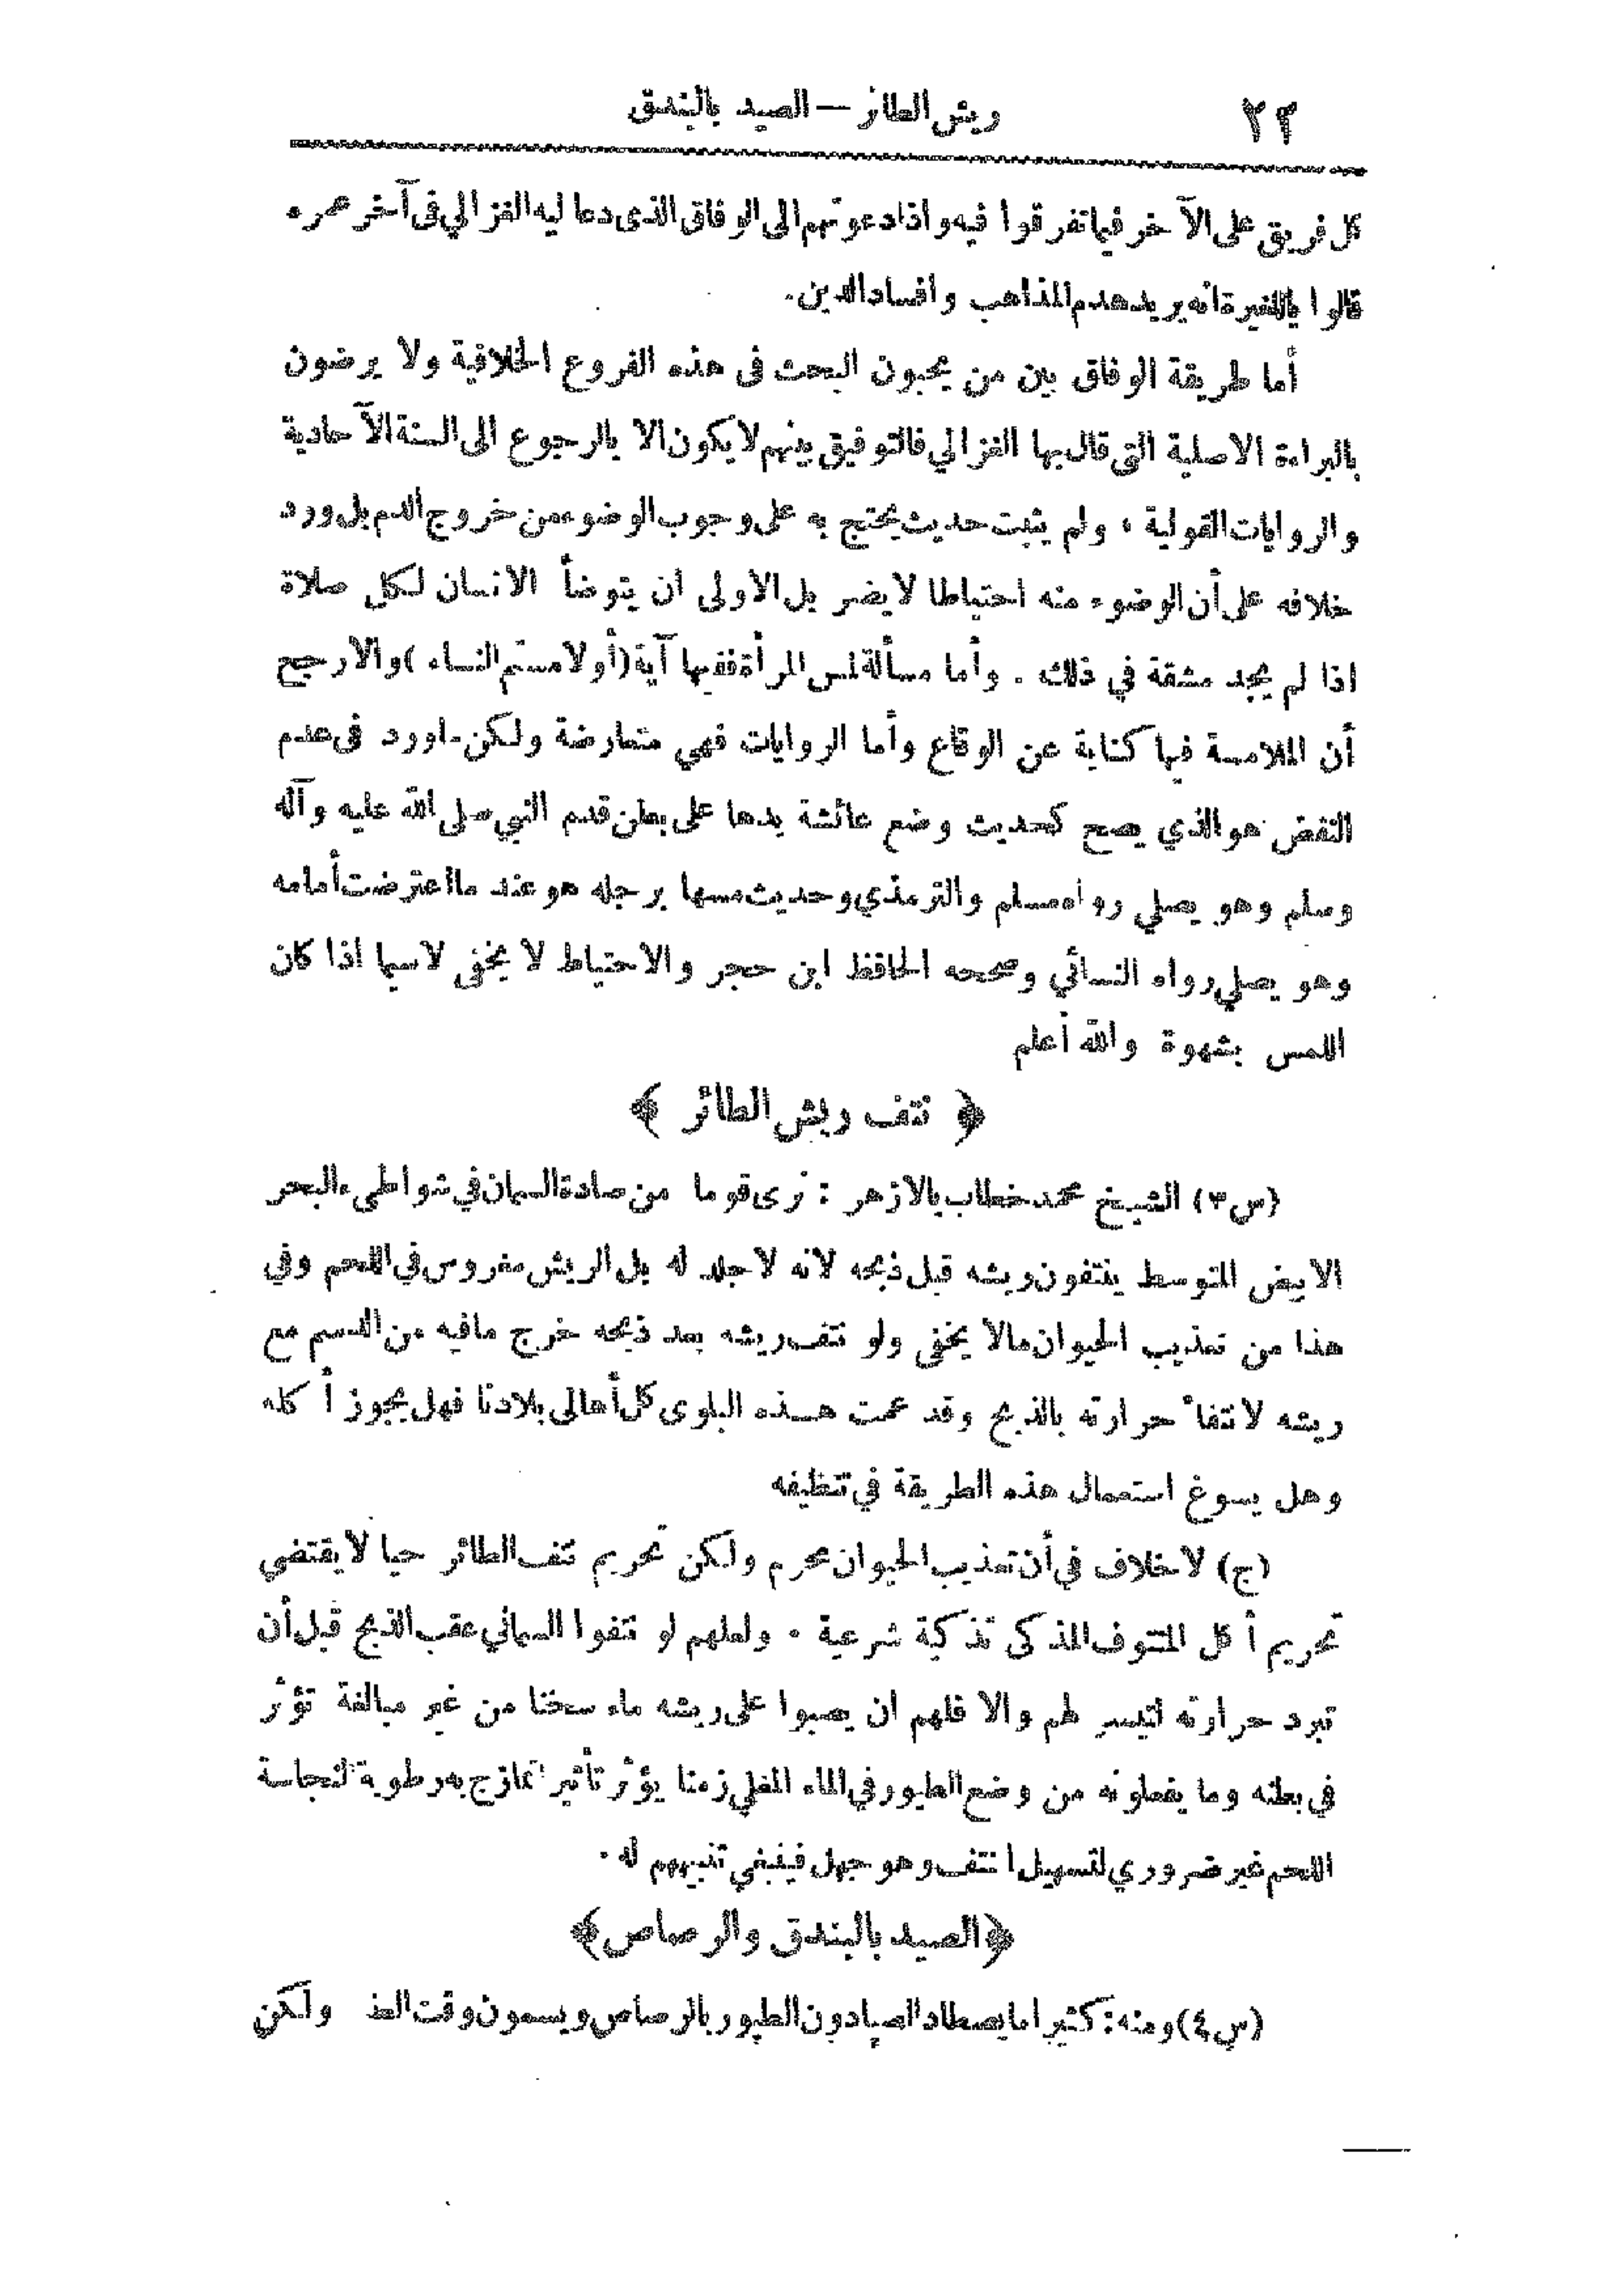 ٢٢
ريش الطائر — الصيد بالبندق
كل فريق على الآخر فيما تفرقوا فيه واذا دعوتهم الى الوفاق الذى دعا ليه الغزالي فى آخر عمره
قالوا ياللغيرة انه يريد هدم المذاهب وافساد الدين.
أما طريقة الوفاق بين من يحبون البحث فى هذه الفروع الخلافية ولا يرضون
بالبراءة الاصلية التى قال بها الغزالي فالتوفيق بينهم لا يكون الا بالرجوع الى السنة الآحادية
والروايات القولية ، ولم يثبت حديث يحتج به على وجوب الوضوء من خروج الدم بل ورد
خلافه على أن الوضوء منه احتياطا لا يضر بل الاولى ان يتوضأ الانسان لكل صلاة
اذا لم يجد مشقة في ذلك . وأما مسألة لمس المرأة ففيها آية (أو لامستم النساء) والارجح
أن الملامسة فيها كناية عن الوقاع وأما الروايات فهي متعارضة ولكن ما ورد فى عدم
النقض هو الذي يصح كحديث وضع عائشة يدها على بطن قدم النبي صلى الله عليه وآله
وسلم وهو يصلي رواه مسلم والترمذي وحديث مسها برجله هو عند ما اعترضت أمامه
وهو يصلي رواه النسائي وصححه الحافظ ابن حجر والاحتياط لا يخفى لا سيما اذا كان
اللمس بشهوة والله أعلم
﴿ نتف ريش الطائر ﴾
(س٣) الشيخ محمد خطاب بالازهر : نرى قوما من صادة السمان في شواطىء البحر
الابيض المتوسط ينتفون ريشه قبل ذبحه لانه لا جلد له بل الريش مغروس في اللحم وفي
هذا من تعذيب الحيوان مالا يخفى ولو نتف ريشه بعد ذبحه خرج مافيه من الدسم مع
ريشه لانتفاء حرارته بالذبح وقد عمت هذه البلوى كل أهالى بلادنا فهل يجوز أكله
وهل يسوغ استعمال هذه الطريقة في تنظيفه
(ج) لا خلاف في أن تعذيب الحيوان محرم ولكن تحريم نتف الطائر حيا لا يقتضي
تحريم أكل المنتوف المذكى تذكية شرعية . ولعلهم لو نتفوا السماني عقب الذبح قبل أن
تبرد حرارته لتيسر لهم والا فلهم ان يصبوا على ريشه ماء سخنا من غير مبالغة تؤثر
في بطنه وما يفعلونه من وضع الطيور في الماء المغلي زمنا يؤثر تأثيرا تمازج به رطوبة النجاسة
اللحم غير ضروري لتسهيل النتف وهو جهل فينبغي تنبيههم له .
﴿الصيد بالبندق والرصاص﴾
(س٤) ومنه: كثيرا ما يصطاد الصيادون الطيور بالرصاص ويسمون وقت ولكن